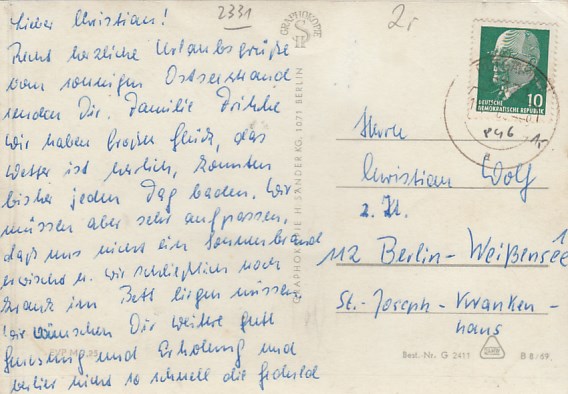 Lieber Christian!
Recht herzliche Urlaubsgrüße
vom sonnigen Ostseestrand
senden Dir Familie
Wir haben großes Glück, das
Wetter ist herrlich, konnten
bisher jeden Tag baden. Wir
müssen aber sehr aufpassen,
daß uns nicht ein Sonnenbrand
erwischt u. wir schließlich noch
krank im Bett liegen müssen.
Wir wünschen Dir weiter gute
Genesung und Erholung und
verlier nicht so schnell die Geduld
2331
GRAPHOKOPIE
GRAPHOKOPIE H. SANDER KG, 1071 BERLIN
EVP MD
DEUTSCHE
DEMOKRATISCHE REPUBLIK
10
Herrn
Christian Wolf
z. Zt.
112 Berlin-Weißensee 1
St.-Joseph-Kranken-
haus
Best.-Nr. G 2411
B 8/69